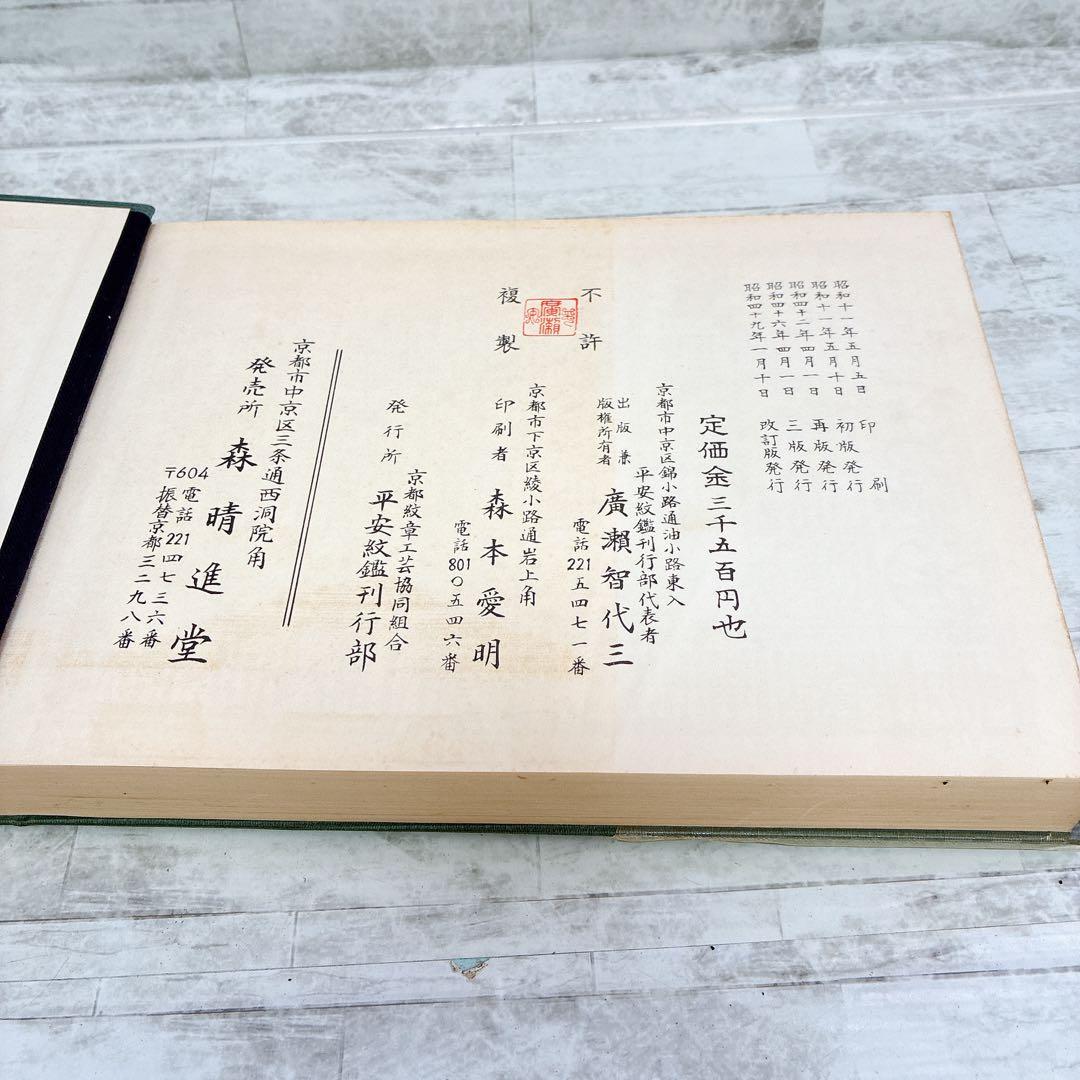 昭和十一年五月五日 印刷
昭和十一年五月十日 初版発行
昭和四十二年四月一日 再版発行
昭和四十六年四月一日 三版発行
昭和四十九年一月十日 改訂版発行
定価金三千五百円也
京都市中京区錦小路通油小路東入
平安紋鑑刊行部代表者
出版兼
版権所有者 廣瀬智代三
電話221五四七一番
不許
複製
廣瀬
京都市下京区綾小路通岩上角
印刷者 森本愛明
電話801〇五四六番
京都紋章工芸協同組合
発行所 平安紋鑑刊行部
京都市中京区三条通西洞院角
発売所 森晴進堂
〒604電話221四七三六番
振替京都三二九八番